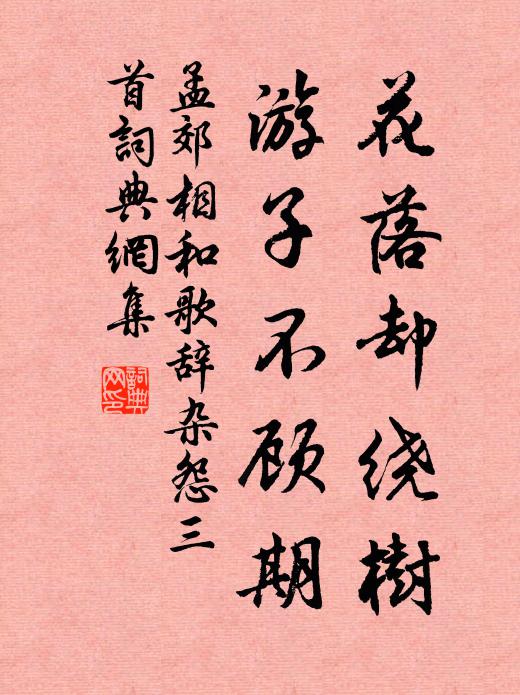 花落却绕樹
游子不顾期
孟郊相和歌辞杂怨三
首詞典網集
詞典
网印